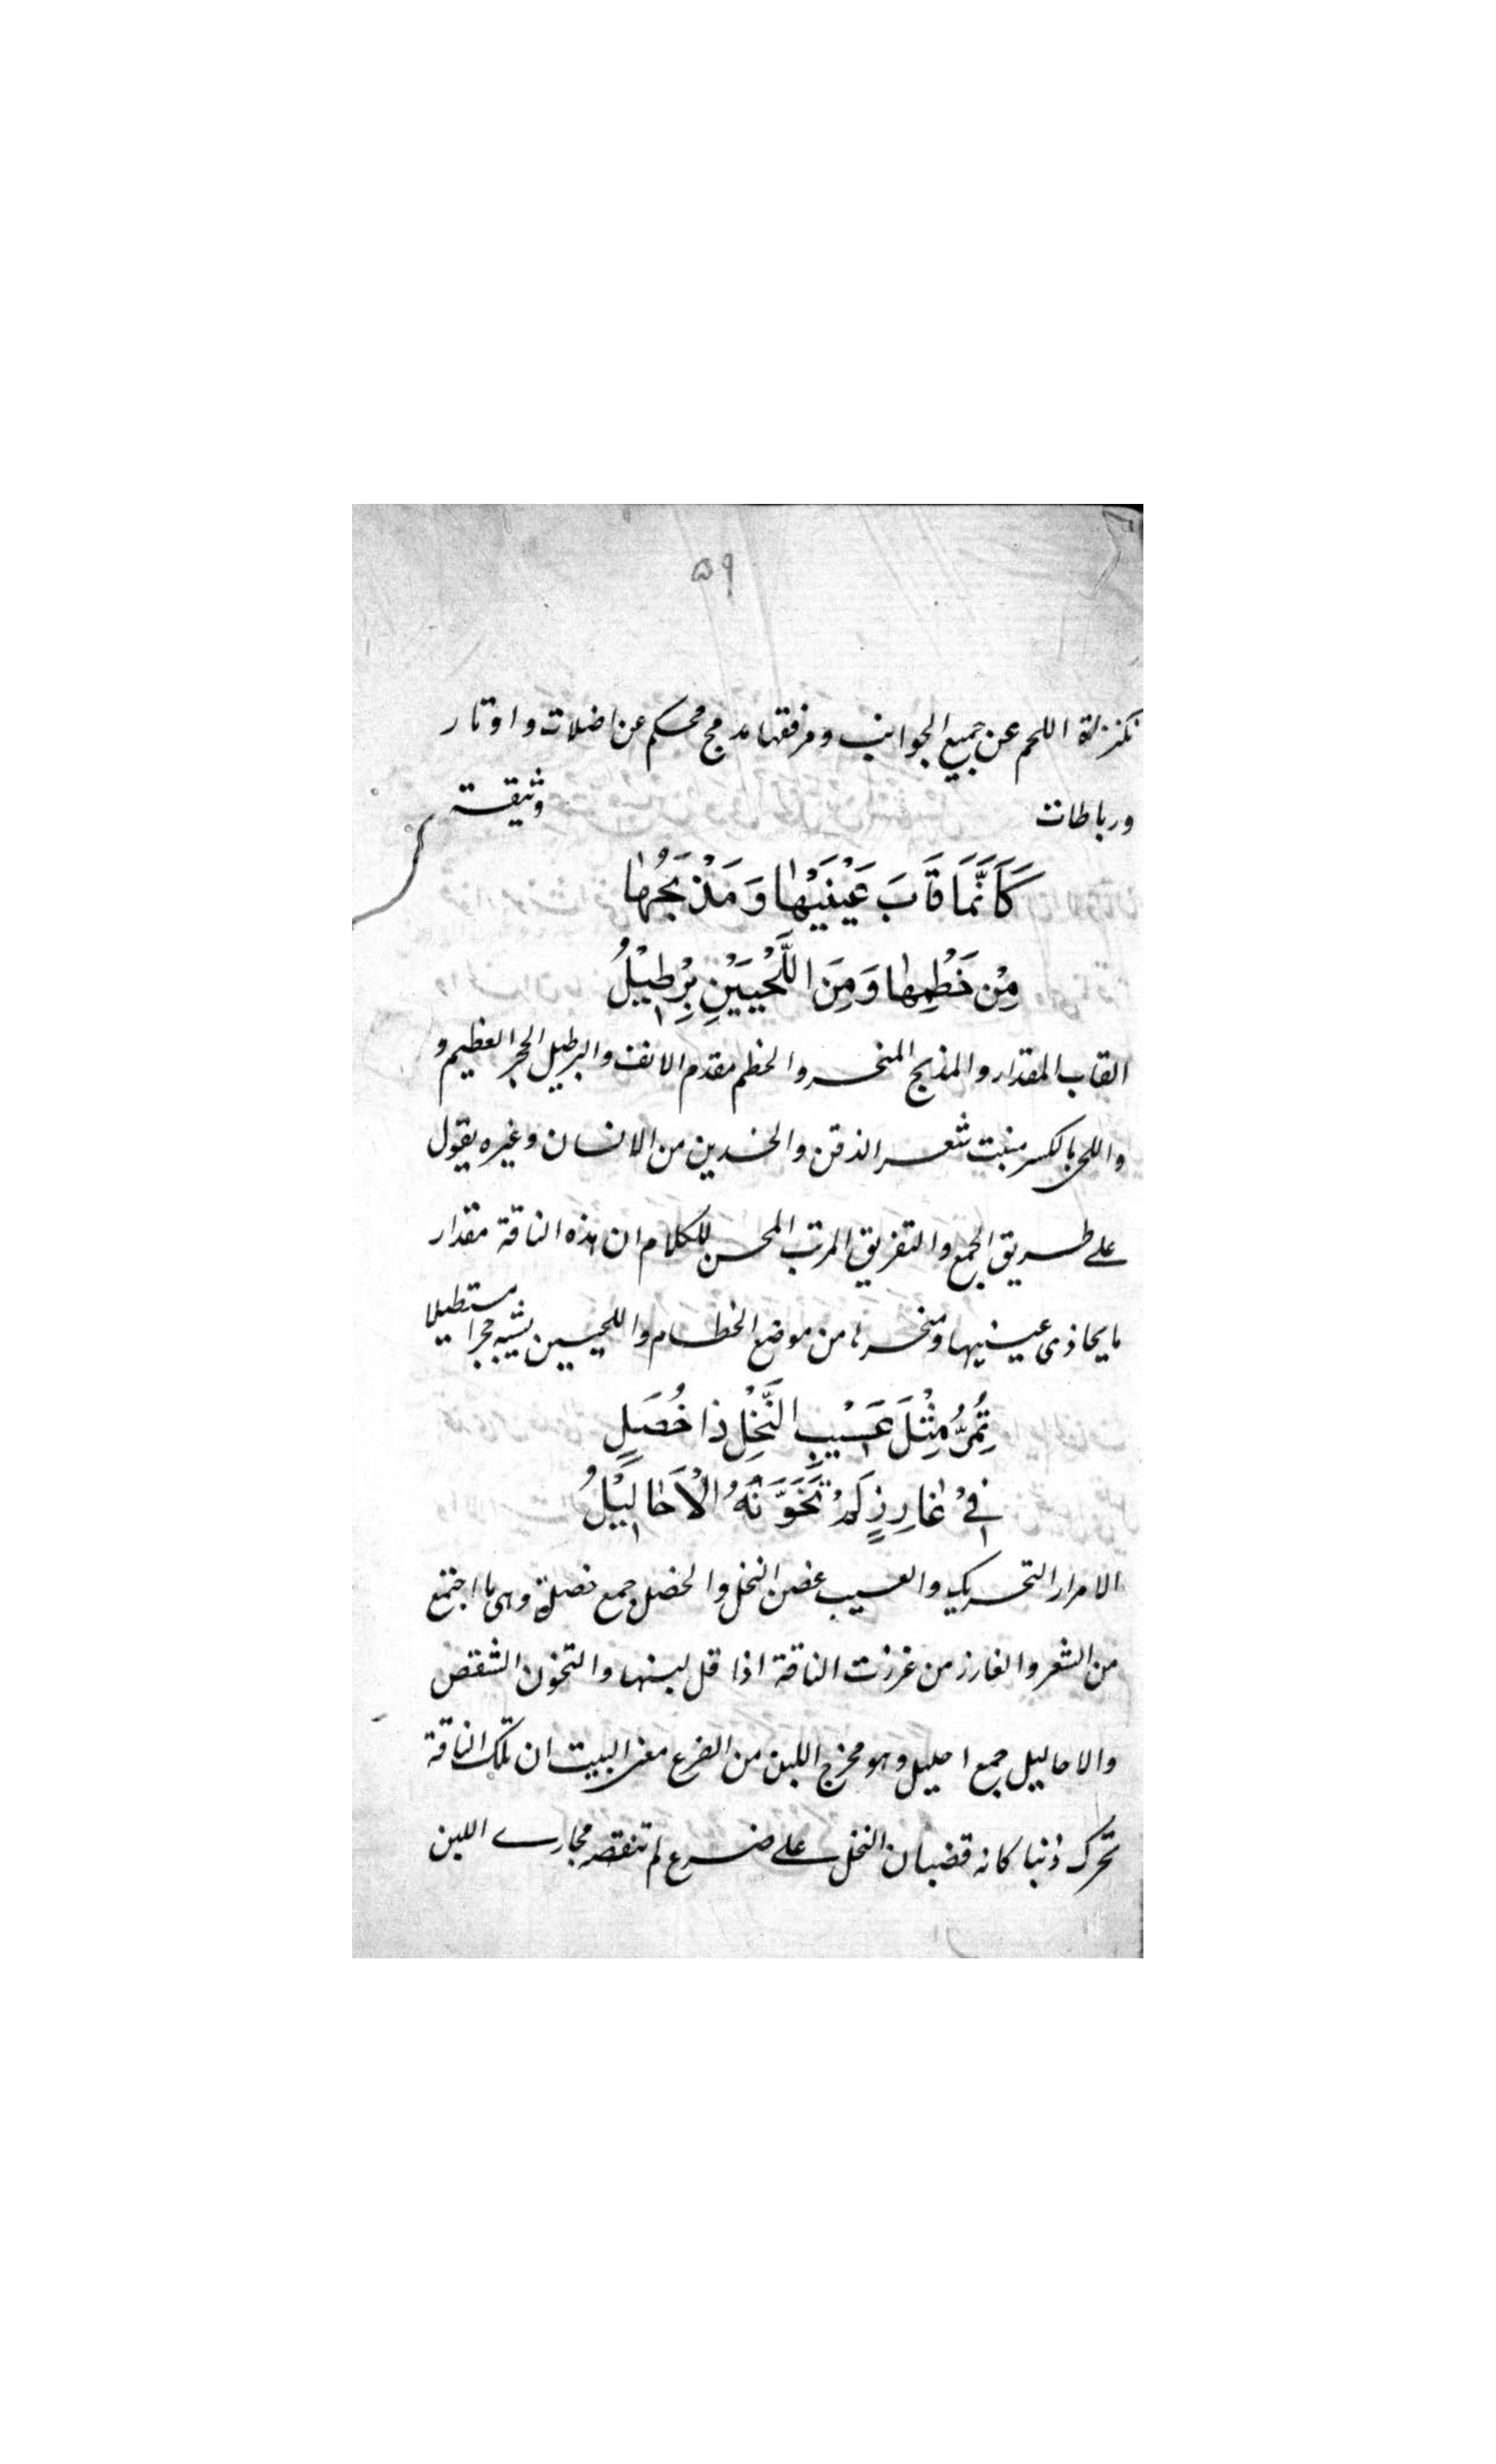 ۵۹
اللحم عن جميع الجوانب ومرفقها مدمج محكم عن اضلات واوتار
ورباطات وثيقة
كَاَنَّمَا قَابَ عَيْنَيْهَا وَ مَذْبَحُهَا
مِنْ خَطْمِهَا وَ مِنَ اللَّحْيَيْنِ بِرْطِيْلُ
القاب المقدار والمذبح المنحر والخطم مقدم الانف والبرطيل الحجر العظيم و
واللحى بالكسر منبت شعر الذقن والخدين من الانسان وغيره يقول
على طريق الجمع والتفريق المرتب المحسن للكلام ان هذه الناقة مقدار
ما يحاذى عينيها ومنحرها من موضع الخطام واللحيين يشبه حجرا مستطيلا
تُمِرُّ مِثْلَ عَسِيْبِ النَّخْلِ ذَا خُصَلٍ
فِىْ غَارِزٍ لَمْ تَخَوَّنَهُ الْاَحَالِيْلُ
الامرار التحريك والعسيب غصن النخل والخصل جمع خصلة وهى ما اجتمع
من الشعر والغارز من غرزت الناقة اذا قل لبنها والتخون التنقص
والاحاليل جمع احليل وهو مخرج اللبن من الضرع معنى البيت ان تلك الناقة
تحرك ذنبا كانه قضبان النخل على ضرع لم تنقصه مجارے اللبن